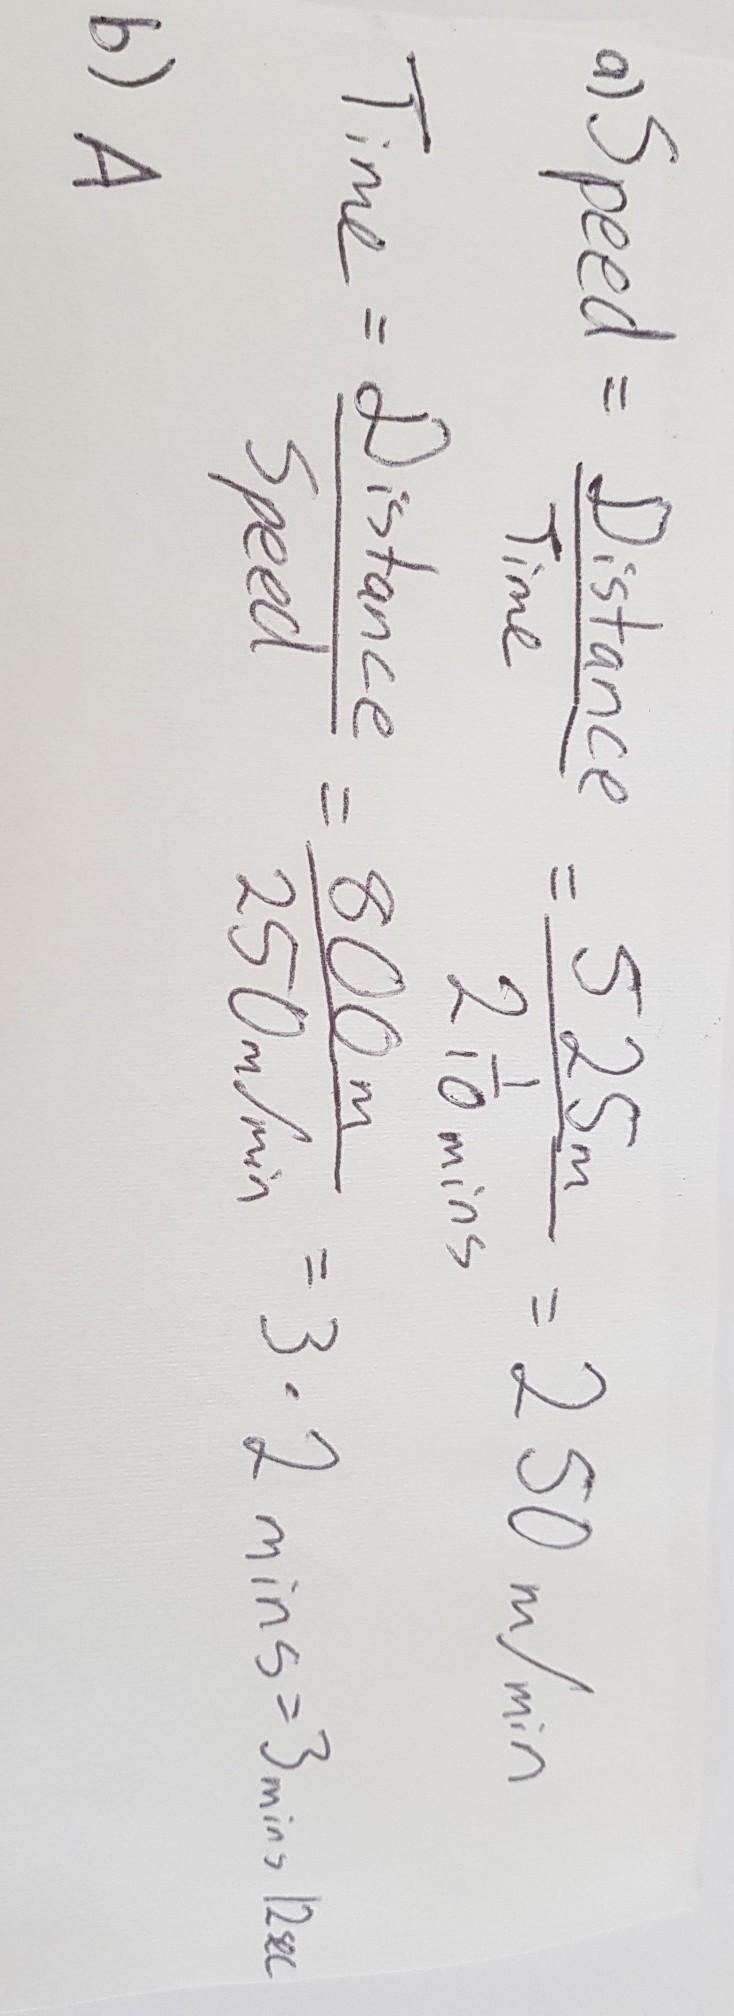 a) Speed = Distance / Time = 525m / 2 1/10 mins = 250 m/min
Time = Distance / Speed = 800m / 250m/min = 3.2 mins = 3 mins 12 sec
b) A